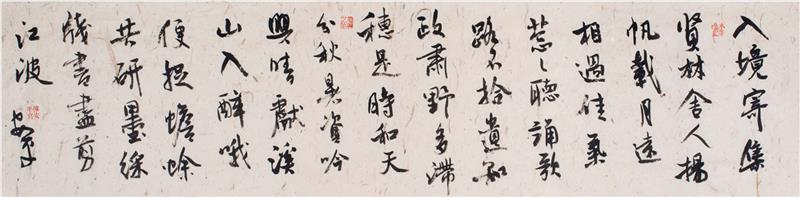 入境寄集
賢林舍人揚
帆載月遠
相過佳氣
葱々聽誦歌
路不拾遺知
政肅野多滯
穗是時和天
分秋暑資吟
興晴獻溪
山入醉哦
便捉蟾蜍
共研墨綵
牋書盡剪
江波